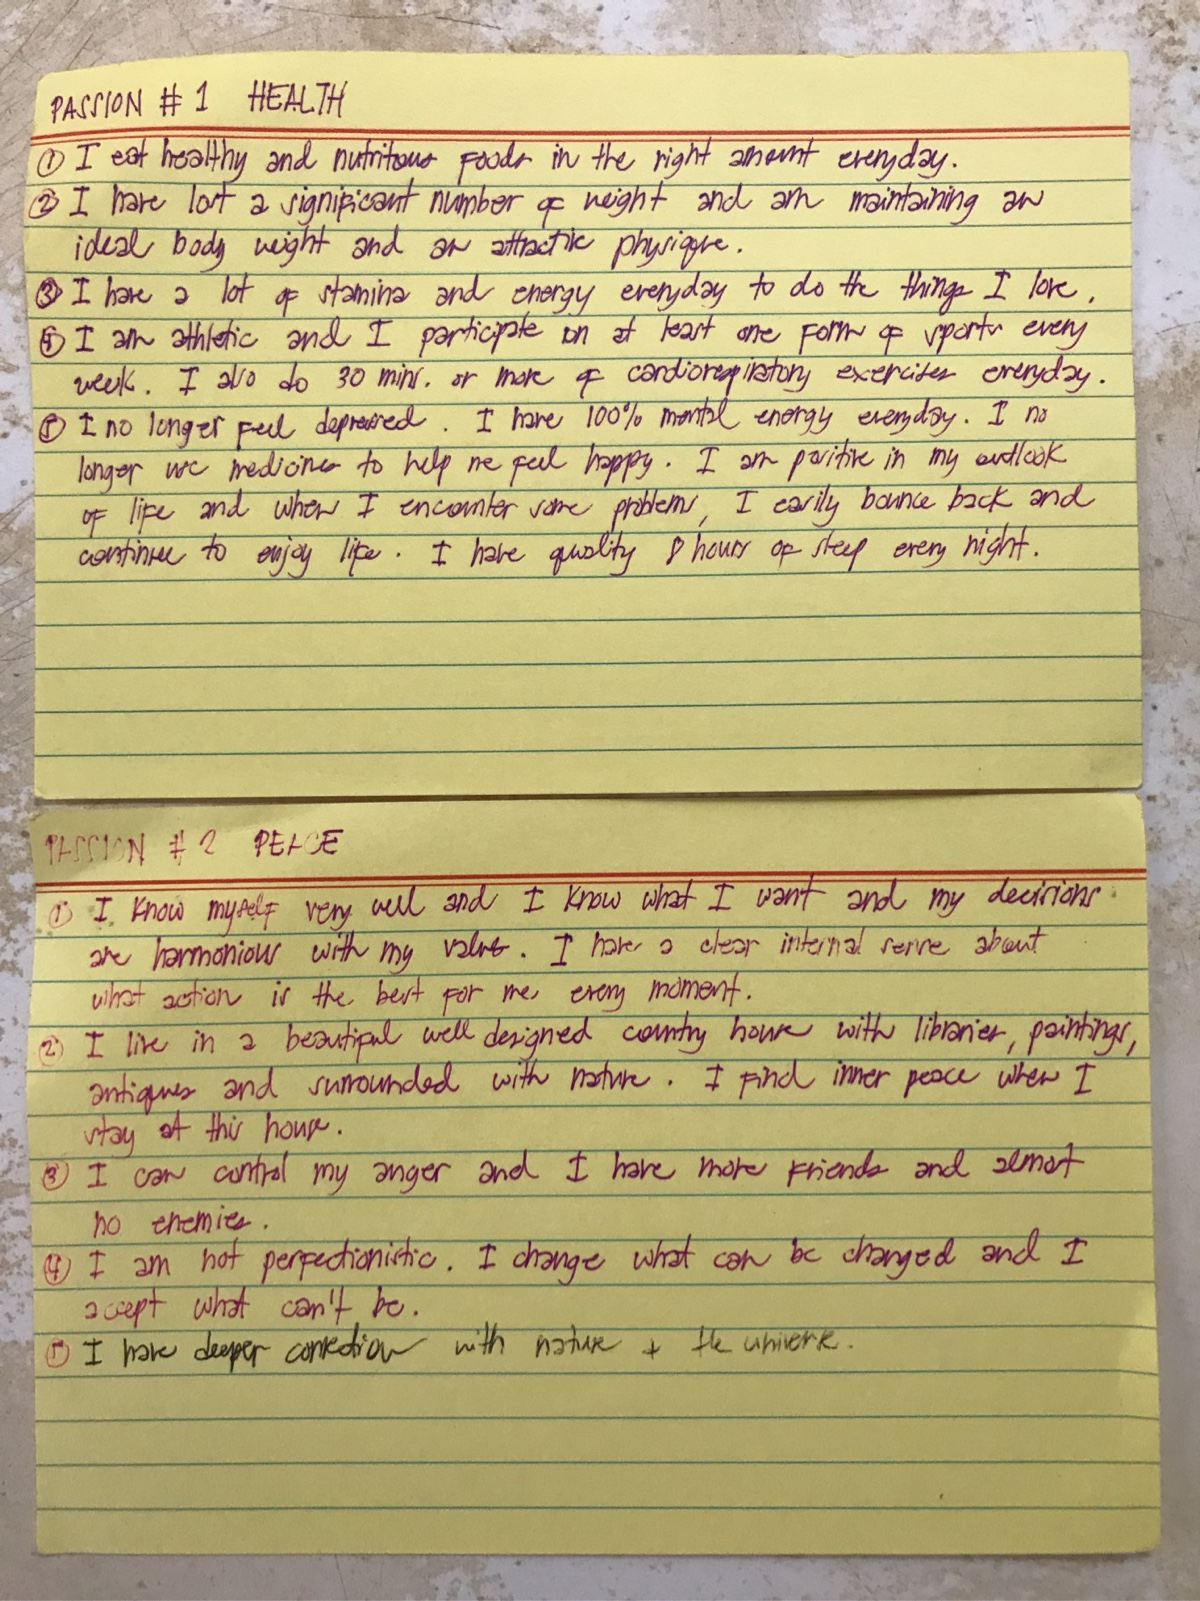 PASSION # 1 HEALTH
① I eat healthy and nutritious foods in the right amount everyday.
② I have lost a significant number of weight and am maintaining an
ideal body weight and an attractive physique.
③ I have a lot of stamina and energy everyday to do the things I love.
④ I am athletic and I participate on at least one form of sports every
week. I also do 30 mins. or more of cardiorespiratory exercises everyday.
⑤ I no longer feel depressed. I have 100% mental energy everyday. I no
longer use medicines to help me feel happy. I am positive in my outlook
of life and when I encounter some problems, I easily bounce back and
continue to enjoy life. I have quality 8 hours of sleep every night.
PASSION # 2 PEACE
① I know myself very well and I know what I want and my decisions
are harmonious with my values. I have a clear internal sense about
what action is the best for me every moment.
② I live in a beautiful well designed country house with libraries, paintings,
antiques and surrounded with nature. I find inner peace when I
stay at this house.
③ I can control my anger and I have more friends and almost
no enemies.
④ I am not perfectionistic. I change what can be changed and I
accept what can't be.
⑤ I have deeper connection with nature + the universe.